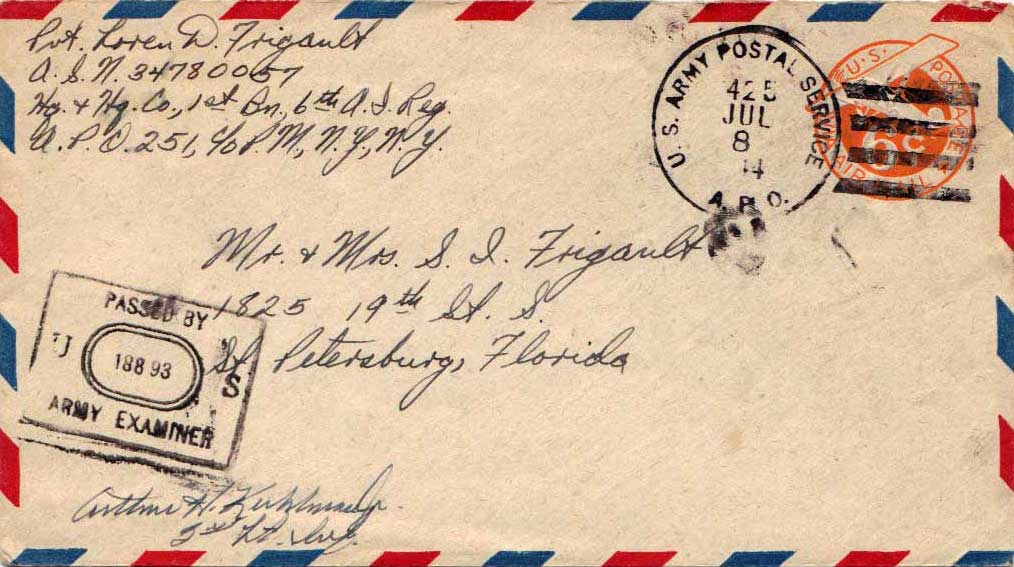 Pvt. Loren D. Frigault
A.S.N. 34780057
Hq. & Hq. Co., 1st Bn, 6th A.I. Reg.
A.P.O. 251, c/o P.M., N.Y., N.Y.
U.S. ARMY POSTAL SERVICE
425
JUL
8
A.P.O.
U.S. POSTAGE
6c
AIR MAIL
Mr. & Mrs. S. I. Frigault
1825 19th St. S.
St. Petersburg, Florida
PASSED BY
U 18893 S
ARMY EXAMINER
Arthur H.
2nd Lt. Inf.